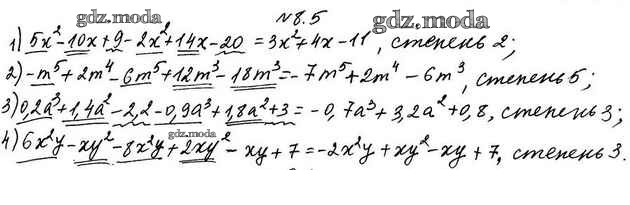 gdz.moda №8.5 gdz.moda
1) 5x²-10x+9-2x²+14x-20 = 3x²+4x-11, степень 2;
2) -m⁵+2m⁴-6m⁵+12m³-18m³=-7m⁵+2m⁴-6m³, степень 5;
3) 0,2a³+1,4a²-2,2-0,9a³+1,8a²+3=-0,7a³+3,2a²+0,8, степень 3;
gdz.moda
4) 6x²y-xy²-8x²y+2xy²-xy+7=-2x²y+xy²-xy+7, степень 3.